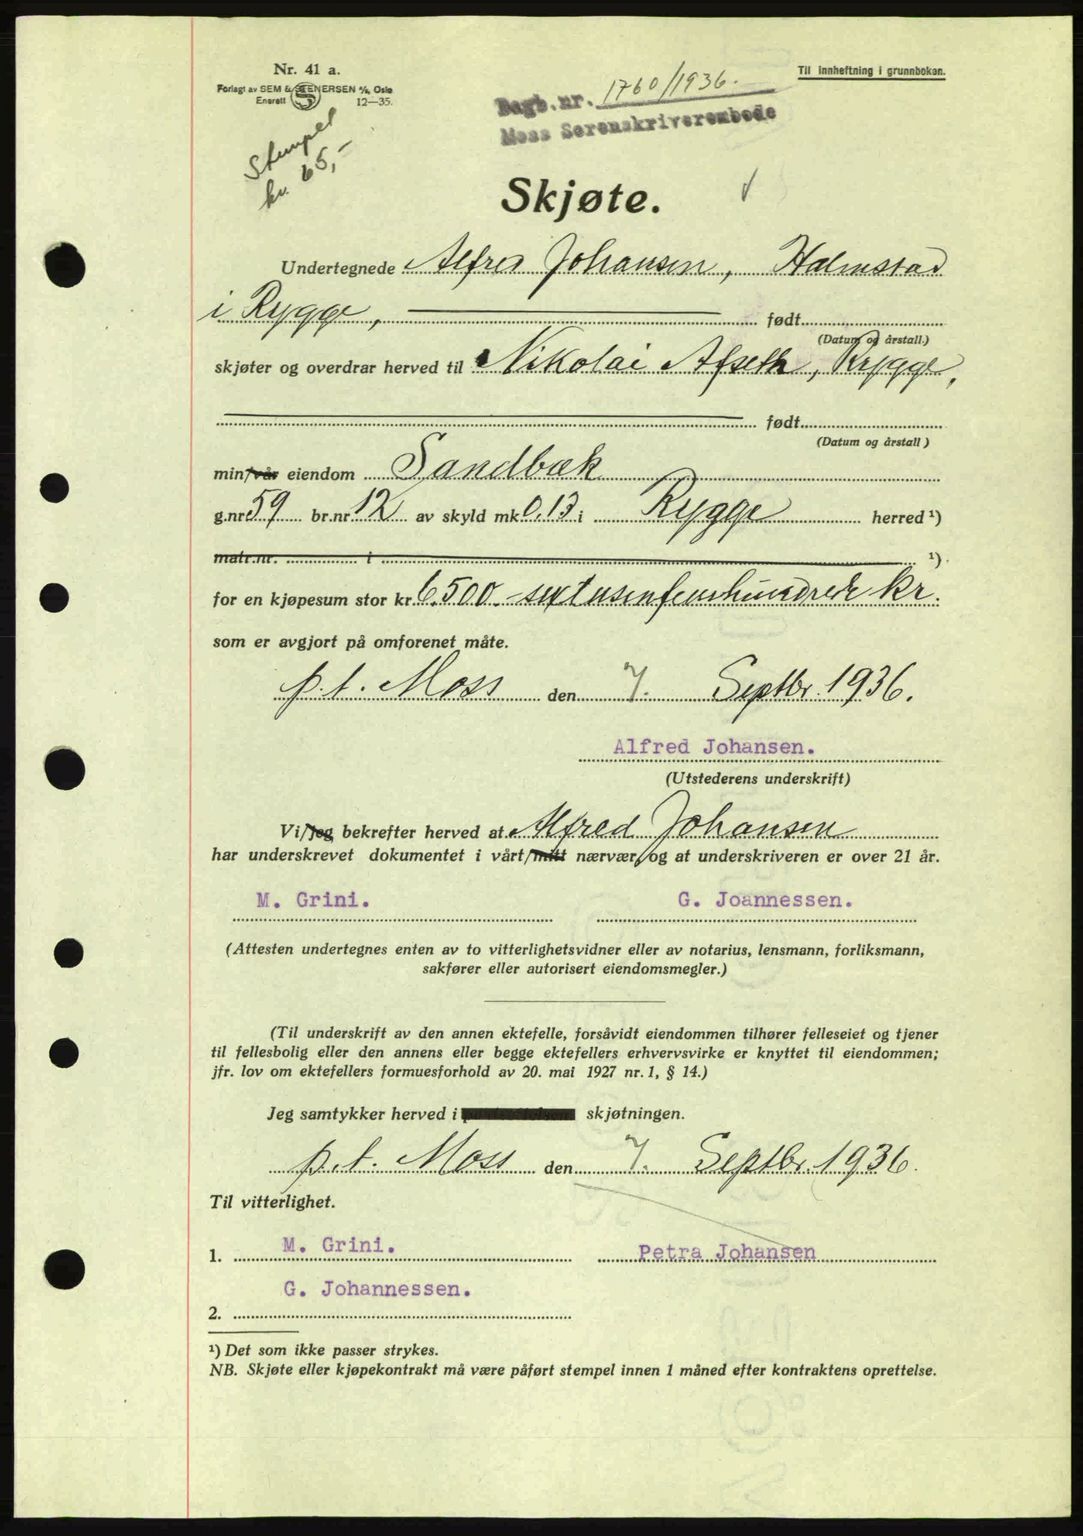 Nr. 41 a.
Forlagt av SEM & STENERSEN A/S, Oslo
Enerett 12—35.
Til innheftning i grunnboken.
Dagb.nr. 1760/1936.
Moss Sorenskriverembede
Stempel
kr. 65,-
Skjøte.
Undertegnede Alfred Johansen, Halmstad
i Rygge, født
(Datum og årstall.)
skjøter og overdrar herved til Nikolai Afseth, Rygge,
født
(Datum og årstall)
min/vår eiendom Sandbæk
g.nr 59 br.nr 12 av skyld mk 0,13 i Rygge herred ¹)
matr.nr. i ¹)
for en kjøpesum stor kr 6.500.- sextusenfemhundrede kr.
som er avgjort på omforenet måte.
p.t. Moss den 7. Septbr. 1936.
Alfred Johansen.
(Utstederens underskrift)
Vi/jeg bekrefter herved at Alfred Johansen
har underskrevet dokumentet i vårt/mitt nærvær, og at underskriveren er over 21 år.
M. Grini. G. Joannessen.
(Attesten undertegnes enten av to vitterlighetsvidner eller av notarius, lensmann, forliksmann,
sakfører eller autorisert eiendomsmegler.)
(Til underskrift av den annen ektefelle, forsåvidt eiendommen tilhører felleseiet og tjener
til fellesbolig eller den annens eller begge ektefellers erhvervsvirke er knyttet til eiendommen;
jfr. lov om ektefellers formuesforhold av 20. mai 1927 nr. 1, § 14.)
Jeg samtykker herved i skjøtningen.
p.t. Moss den 7. Septbr. 1936.
Til vitterlighet.
1. M. Grini. Petra Johansen
G. Johannessen.
2.
¹) Det som ikke passer strykes.
NB. Skjøte eller kjøpekontrakt må være påført stempel innen 1 måned efter kontraktens oprettelse.